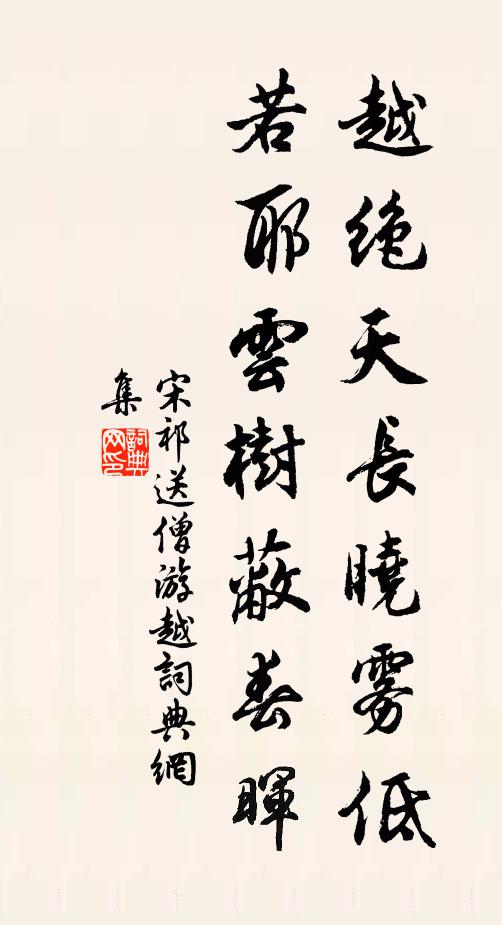 越絶天長曉雾低
若耶雲樹蔽春暉
宋祁送僧游越詞典網
集
詞典
网印